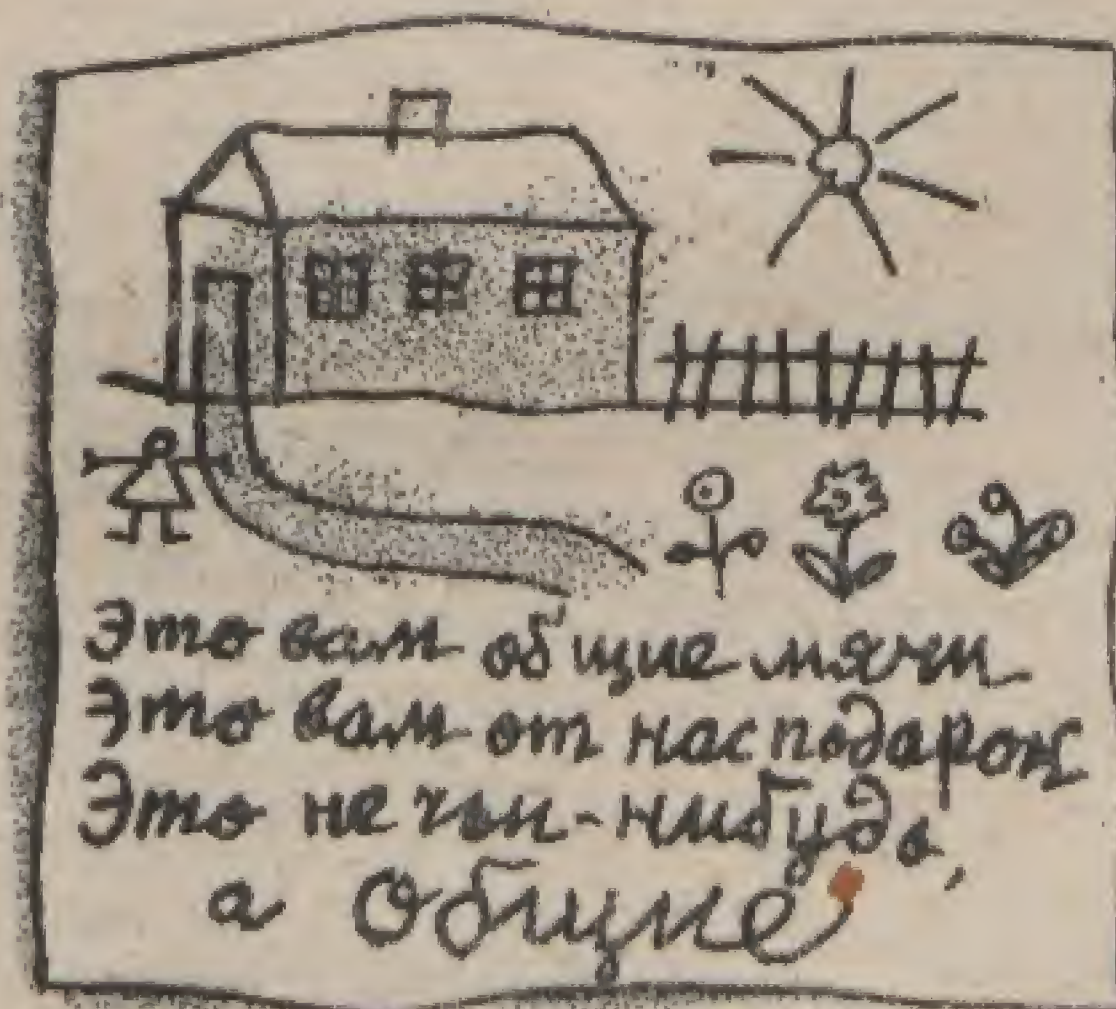 Это вам общие мячи
Это вам от нас подарок
Это не чьи-нибудь,
а Общие